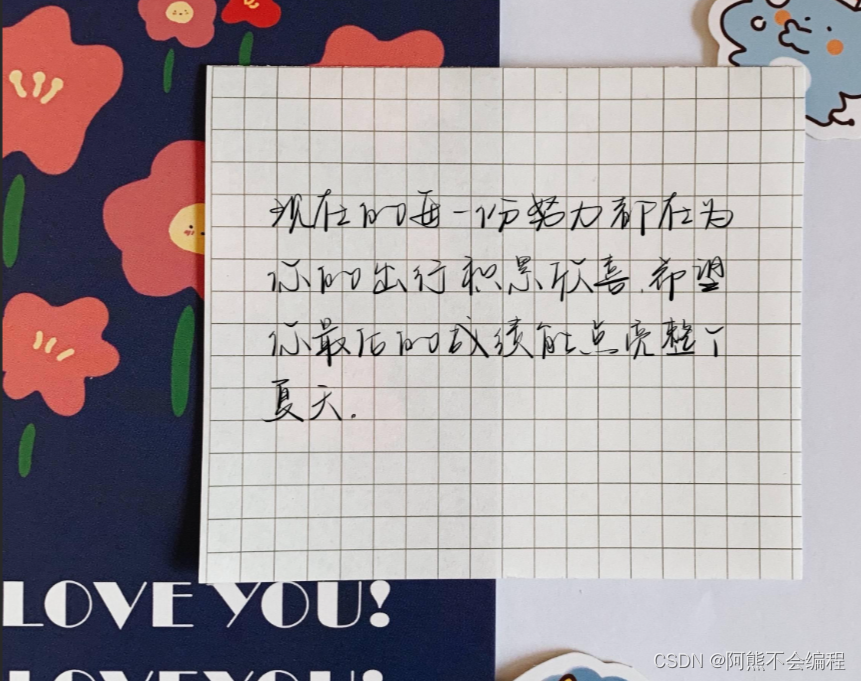 现在的每一份努力都在为
你的出行积累欣喜.希望
你最后的成绩能点亮整个
夏天.
LOVE YOU!
LOVE YOU!
CSDN @阿熊不会编程